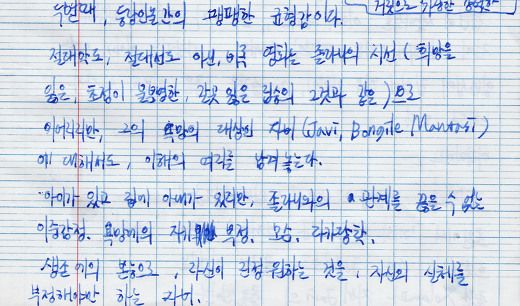 두번째, 등장인물간의 팽팽한 균형감이다.
절대악도, 절대선도 아닌, 이 영화는 졸라니의 시선 (희망을
잃은, 초점이 불분명한, 갈곳 잃은 짐승의 그것과 같은)으로
이어지지만, 그의 욕망의 대상인 자비 (Javi, Bongile Mantsai)
에 대해서도, 이해의 여지를 남겨놓는다.
아이가 있고 집에 아내가 있지만, 졸라니와의 관계를 끊을 수 없는
이중감정. 욕망에의 자기 부정. 모순. 자가당착.
생존에의 본능으로, 자신이 진정 원하는 것을, 자신의 실체를
부정해야만 하는 자비.